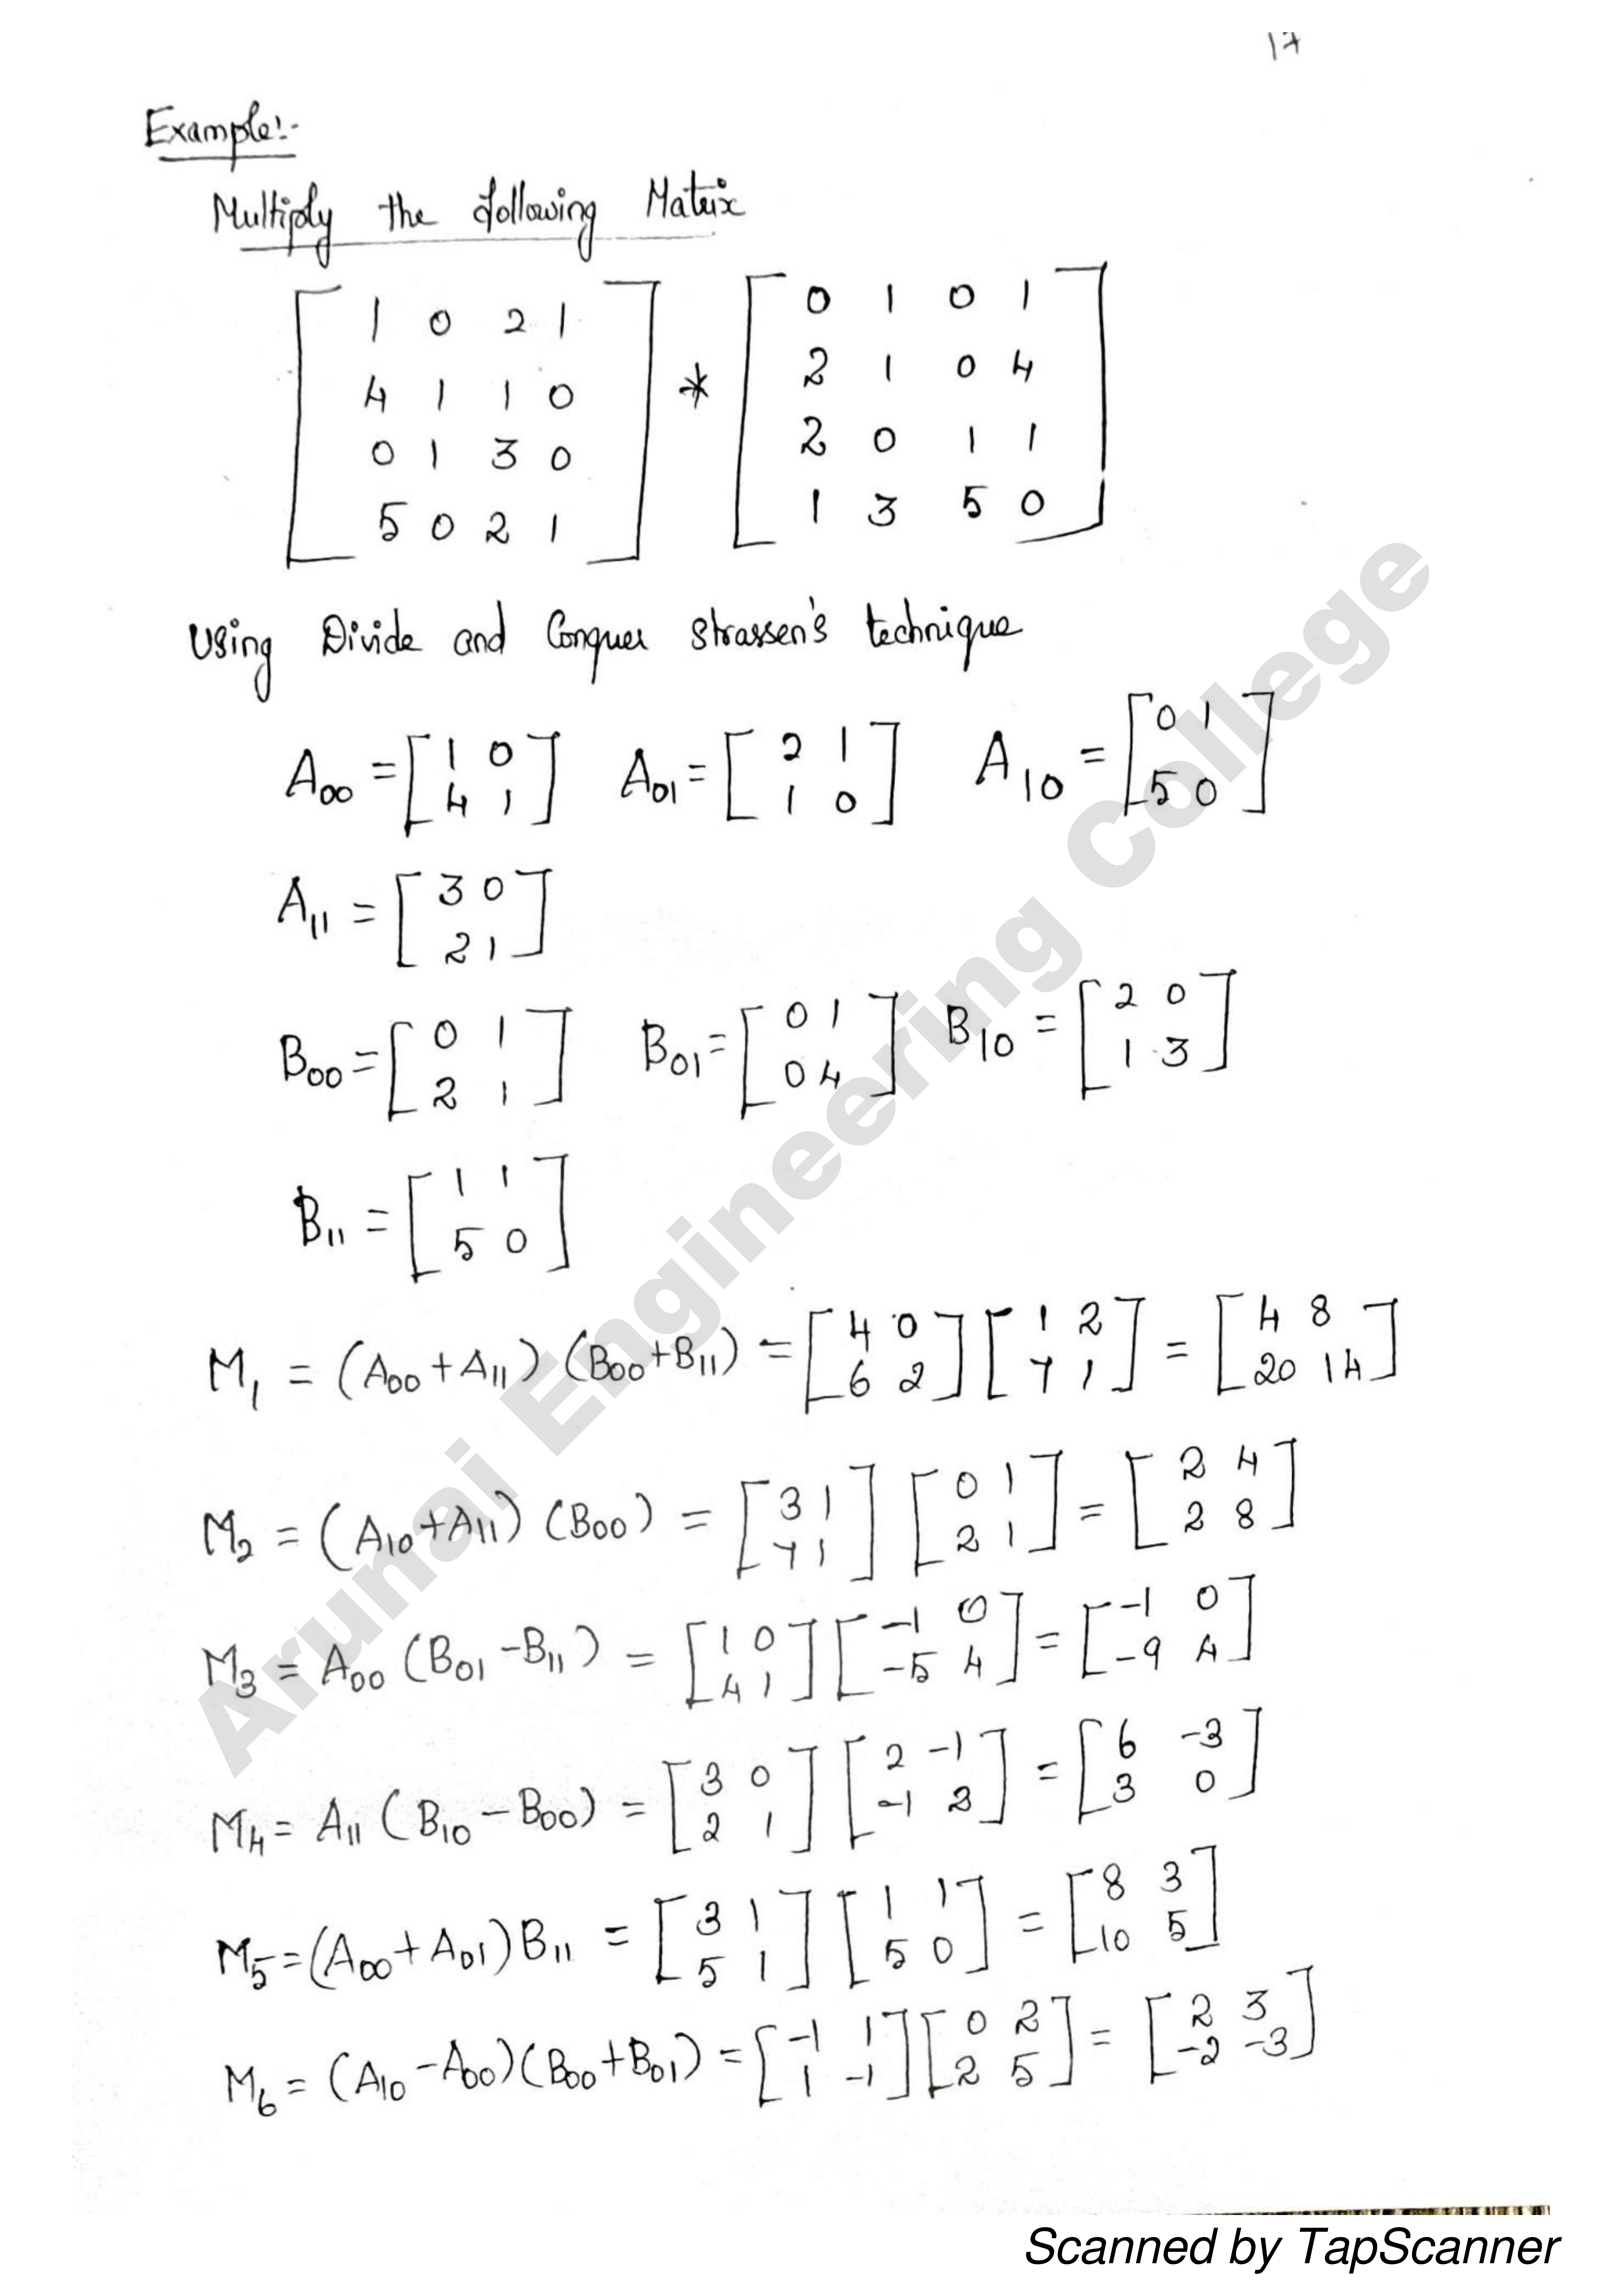 17
Example:-
Multiply the following Matrix
[1 0 2 1; 4 1 1 0; 0 1 3 0; 5 0 2 1] * [0 1 0 1; 2 1 0 4; 2 0 1 1; 1 3 5 0]
Using Divide and Conquer Strassen's technique
A00 = [1 0; 4 1] A01 = [2 1; 1 0] A10 = [0 1; 5 0]
A11 = [3 0; 2 1]
B00 = [0 1; 2 1] B01 = [0 1; 0 4] B10 = [2 0; 1 3]
B11 = [1 1; 5 0]
M1 = (A00 + A11) (B00 + B11) = [4 0; 6 2] [1 2; 7 1] = [4 8; 20 14]
M2 = (A10 + A11) (B00) = [3 1; 7 1] [0 1; 2 1] = [2 4; 2 8]
M3 = A00 (B01 - B11) = [1 0; 4 1] [-1 0; -5 4] = [-1 0; -9 4]
M4 = A11 (B10 - B00) = [3 0; 2 1] [2 -1; -1 2] = [6 -3; 3 0]
M5 = (A00 + A01) B11 = [3 1; 5 1] [1 1; 5 0] = [8 3; 10 5]
M6 = (A10 - A00) (B00 + B01) = [-1 1; 1 -1] [0 2; 2 5] = [2 3; -2 -3]
Arunai Engineering College
Scanned by TapScanner